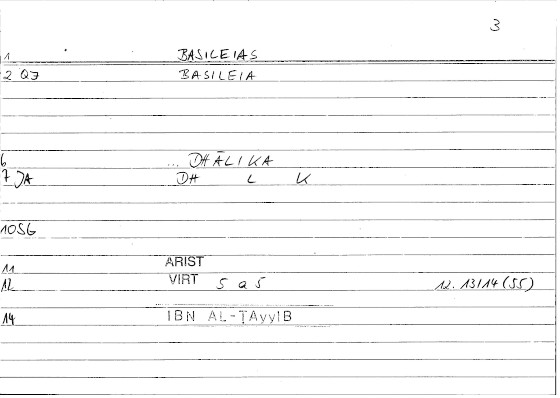 3
1 BASILEIAS
2 QJ BASILEIA
6 ... DHĀLIKA
7 JA DH L K
10SG
11 ARIST
12 VIRT 5 a 5 12.13/14 (55)
14 IBN AL-ṬAyyIB